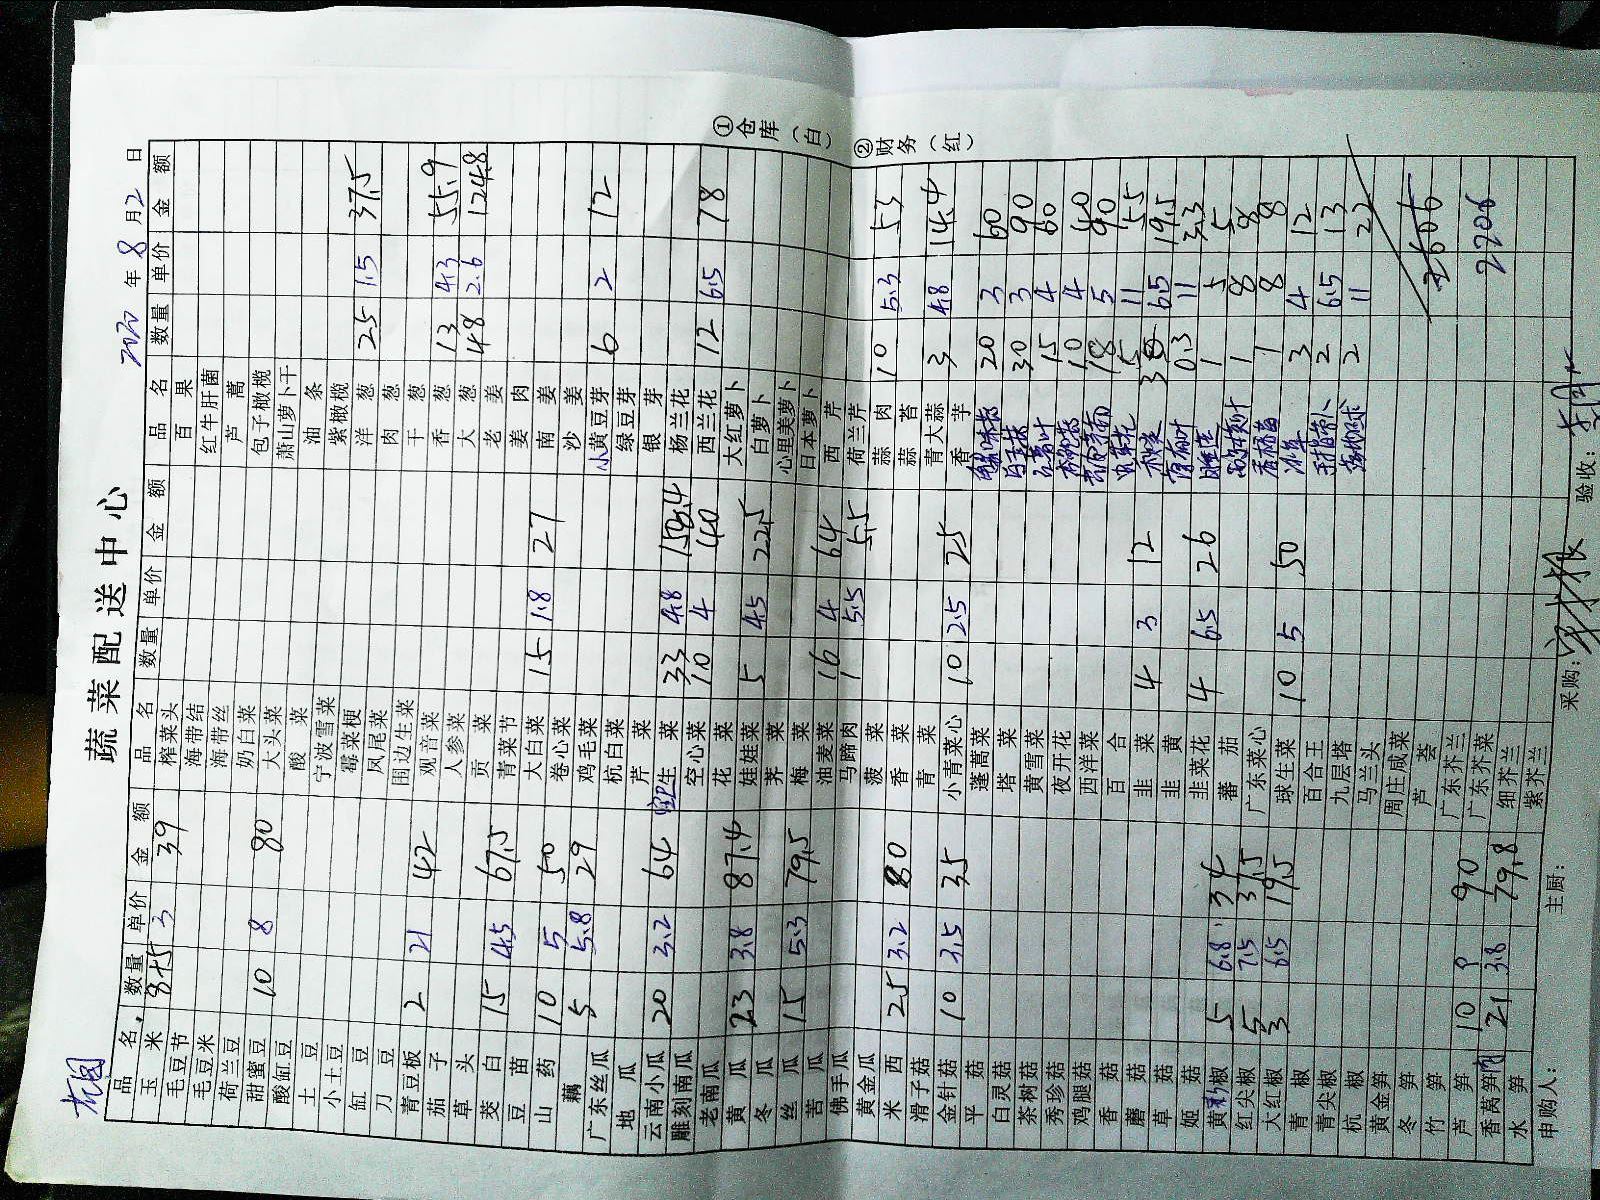 蔬菜配送中心
2020年8月2日
品名 数量 单价 金额 品名 数量 单价 金额 品名 数量 单价 金额
玉米 3 39 榨菜头 百果
毛豆节 海带结 红牛肝菌
毛豆米 海带丝 芦蒿
荷兰豆 奶白菜 包子橄榄
甜蜜豆 10 8 80 大头菜 萧山萝卜干
酸缸豆 酸菜 油条
土豆 宁波雪菜 紫橄榄
小土豆 霉菜梗 洋葱 25 1.5 37.5
缸豆 凤尾菜 肉葱
刀豆 围边生菜 干葱
青豆板 2 21 42 观音菜 香葱 13 4.3 55.9
茄子 人参菜 大葱 48 2.6 124.8
草头 贡菜 老姜
茭白 15 4.5 67.5 青菜节 姜肉
豆苗 大白菜 15 1.8 27 南姜
山药 10 5 50 卷心菜 沙姜
藕 5 5.8 29 鸡毛菜 小黄豆芽 6 2 12
广东丝瓜 杭白菜 绿豆芽
地瓜 芹菜 银芽
云南小瓜 20 3.2 64 生菜 33 4.8 158.4 杨兰花
雕刻南瓜 空心菜 10 4 40 西兰花 12 6.5 78
老南瓜 花菜 大红萝卜
黄瓜 23 3.8 87.4 娃娃菜 5 4.5 22.5 白萝卜
冬瓜 荠菜 心里美萝卜
丝瓜 15 5.3 79.5 梅菜 日本萝卜
苦瓜 油麦菜 16 4 64 西芹
佛手瓜 马蹄肉 1 5.5 5.5 荷兰芹
黄金瓜 菠菜 蒜肉 10 5.3 53
米西 25 3.2 80 香菜 蒜苔
滑子菇 青菜 青大蒜 3 4.8 14.4
金针菇 10 3.5 35 小青菜心 10 2.5 25 香芋
平菇 蓬蒿菜 20 3 60
白灵菇 塔菜 30 3 90
茶树菇 黄雪菜 15 4 60
秀珍菇 夜开花 10 4 40
鸡腿菇 西洋菜 18 5 90
香菇 百合 5 11 55
蘑菇 韭菜 4 3 12 6.5 19.5
草菇 韭黄 0.3 11 3.3
姬菇 韭菜花 4 6.5 26 1 5 5
椒 5 6.8 34 番茄 1 8 8
红尖椒 5 7.5 37.5 广东菜心 1 8 8
大红椒 3 6.5 19.5 球生菜 10 5 50 3 4 12
青椒 百合王 2 6.5 13
青尖椒 九层塔 2 11 22
杭椒 马兰头
黄金笋 周庄咸菜
冬笋 芦荟 2606
竹笋 广东芥兰
芦笋 10 9 90 广东芥菜 2206
香莴笋 21 3.8 79.8 细芥兰
水笋 紫芥兰
申购人： 主厨： 采购： 验收：
①仓库（白） ②财务（红）